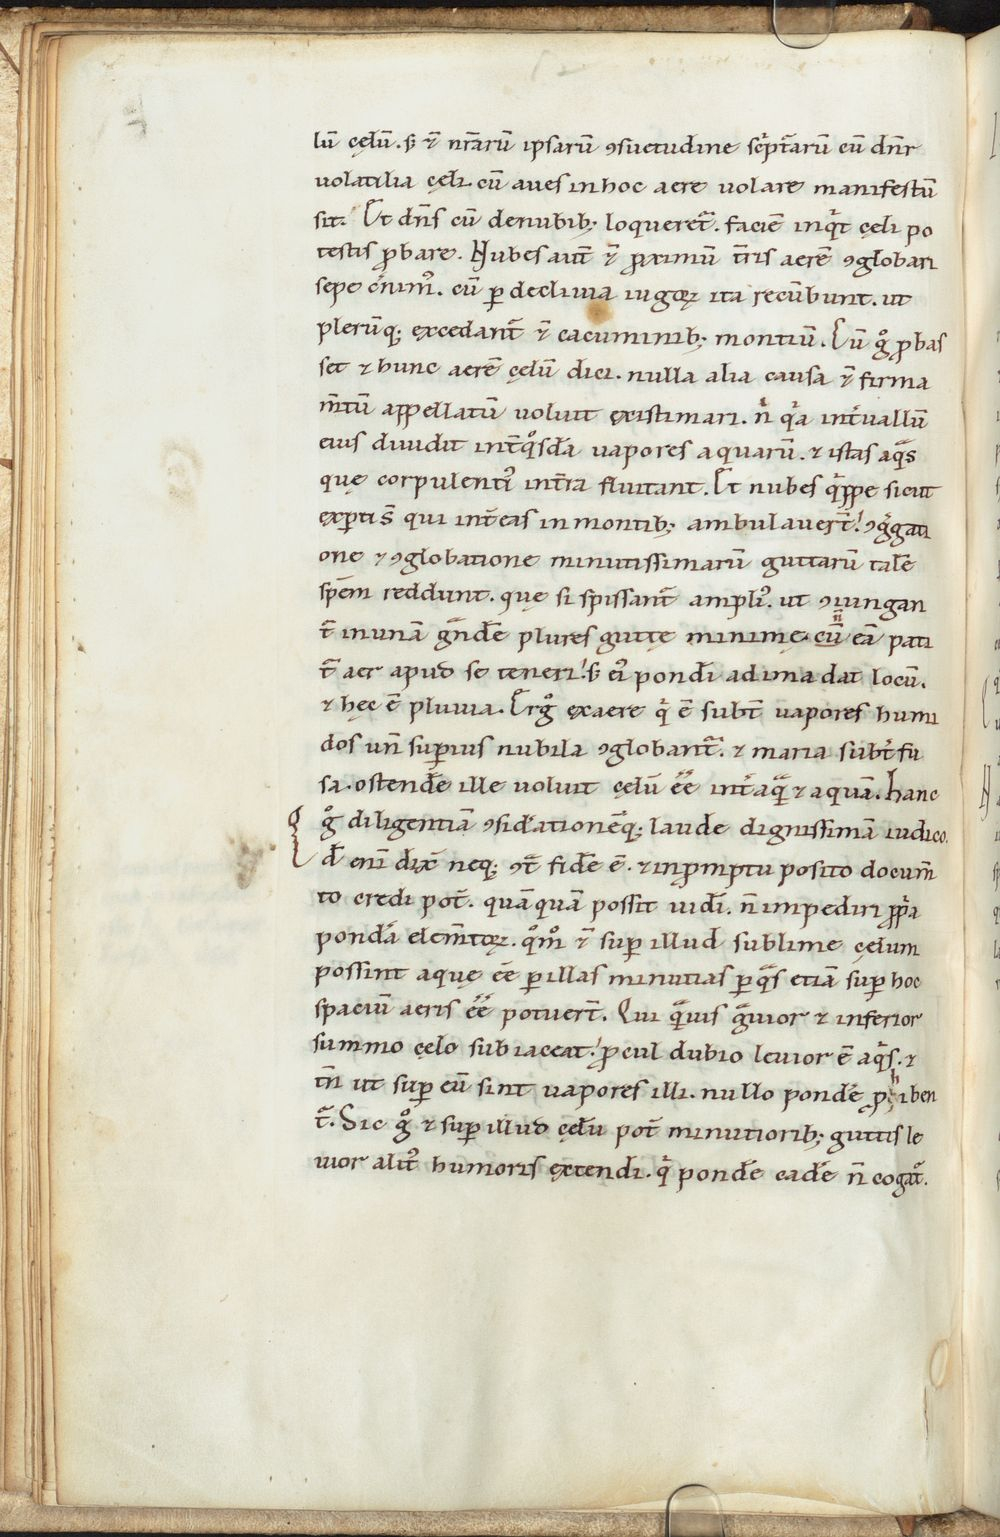 lū cęlū. s; & nr̄arū ipsarū ꝯsuetudine sc̓ptarū cū dn̄r
uolatilia cęli. cū aues in hoc aere uolare manifestū
sit. Et dn̄s cū de nubib; loqueret̄. faciē inqͥt cęli po
testis ꝓbare. Nubes aut̄ & ꝓximū t̄ris aerē ꝯglobari
sepe cernimꝰ. cū ꝑ decliuia iugoꝝ ita recūbunt. ut
plerūq; excedant̄ & cacuminib; montiū. Cū gͦ ꝓbas
set & hunc aerē cęlū dici. nulla alia causa & firma
m̄tū appellatū uoluit existimari. n̄ qͥa int̄uallū
eius diuidit int̄ qͦsdā vapores aquarū. & istas aqͣs
quę corpulentiꝰ in t̄ra fluitant. Et nubes qͥppe sicut
exꝑti s̄ qui int̄ eas in montib; ambulauer̄t. ꝯgͤgati
one & ꝯglobatione minutissimarū guttarū talē
spēm reddunt. quę si spissant̄ ampliꝰ. ut ꝯiungan
t̄ in unā gͣndē plures guttę minimę. cū n̄ eā pati
t̄ aer apud se teneri. s; eiꝰ pondi ad ima dat locū.
& hęc ē pluuia. Ergͦ ex aere qͥ ē subt̄ vapores humi
dos un̄ superius nubila ꝯglobant̄. & maria subt̄ fu
sa. ostendē ille uoluit cęlū ee̅ int̄ aqͣ & aquā. Hanc
gͦ diligentiā ꝯsidationēq; laude dignissimā iudico.
Qd̄ eni dix̄ neq; ꝯt̄ fidē ē. & in ꝓmptu posito docum̄
to credi pot̄. quāquā possit uidi. n̄ impediri ꝓpͥa
pondā elem̄toꝝ. qͦmͦ & suꝑ illud sublime cęlum
possint aquę ee̅ ꝑ illas minutias ꝑ qͣs etiā suꝑ hoc
spaciū aeris ee̅ potuer̄t. Qui qͣuis gͣuior & inferior
summo cęlo subiaceat. ꝓcul dubio leuior ē aqͥs. &
tn̄ ut suꝑ eū sint vapores illi. nullo pondē ꝓhiben
t̄. Sic gͦ & suꝑ illud cęlū pot̄ minutiorib; guttis le
uior alitꝰ humoris extendi. qͥ pondē cadē n̄ cogat̄.